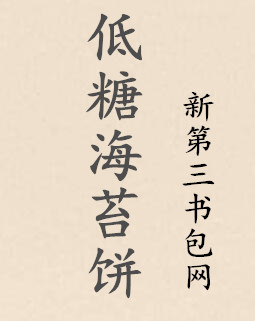 低糖海苔饼
新第三书包网